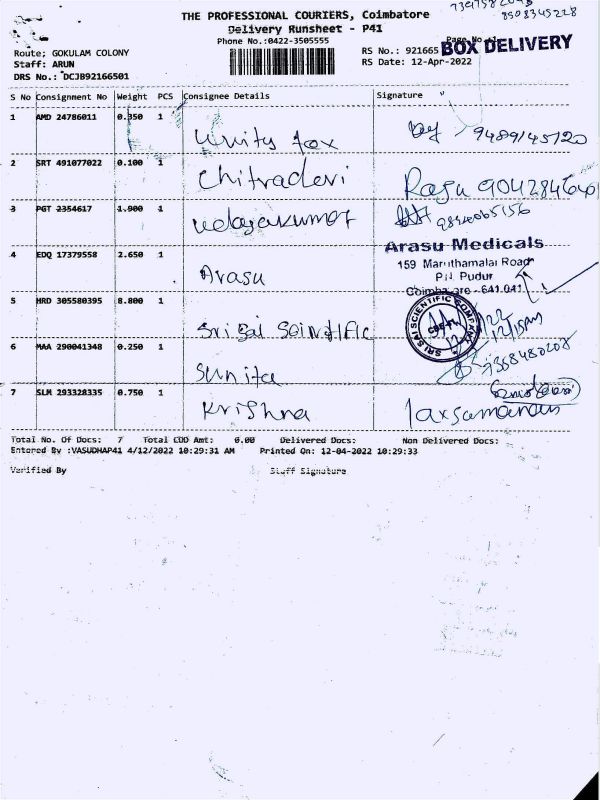 8508345228
THE PROFESSIONAL COURIERS, Coimbatore
Delivery Runsheet - P41
Phone No.:0422-3505555
Page No.:1
Route: GOKULAM COLONY
Staff: ARUN
DRS No.: DCJB92166501
RS No.: 921665
BOX DELIVERY
RS Date: 12-Apr-2022
S No Consignment No Weight PCS Consignee Details Signature
1 AMD 24786011 0.350 1
Unity fox 9489145120
2 SRT 491077022 0.100 1
Chitradevi Raju
3 PGT 2354617 1.900 1
Udayakumar 9840065156
Arasu Medicals
159 Maruthamalai Road
P.N. Pudur
Coimbatore - 641 041
4 EDQ 17379558 2.650 1
Arasu
5 HRD 305580395 8.800 1
Sri Sai Scintific
SRI SAI SCIENTIFIC COMPANY
CBE-41
12/15pm
6 MAA 290041348 0.250 1
Sunita 7358480208
7 SLM 293328335 0.750 1
Krishna laxsamanan
Total No. Of Docs: 7 Total COD Amt: 0.00 Delivered Docs: Non Delivered Docs:
Entered By :VASUDHAP41 4/12/2022 10:29:31 AM Printed On: 12-04-2022 10:29:33
Verified By Staff Signature